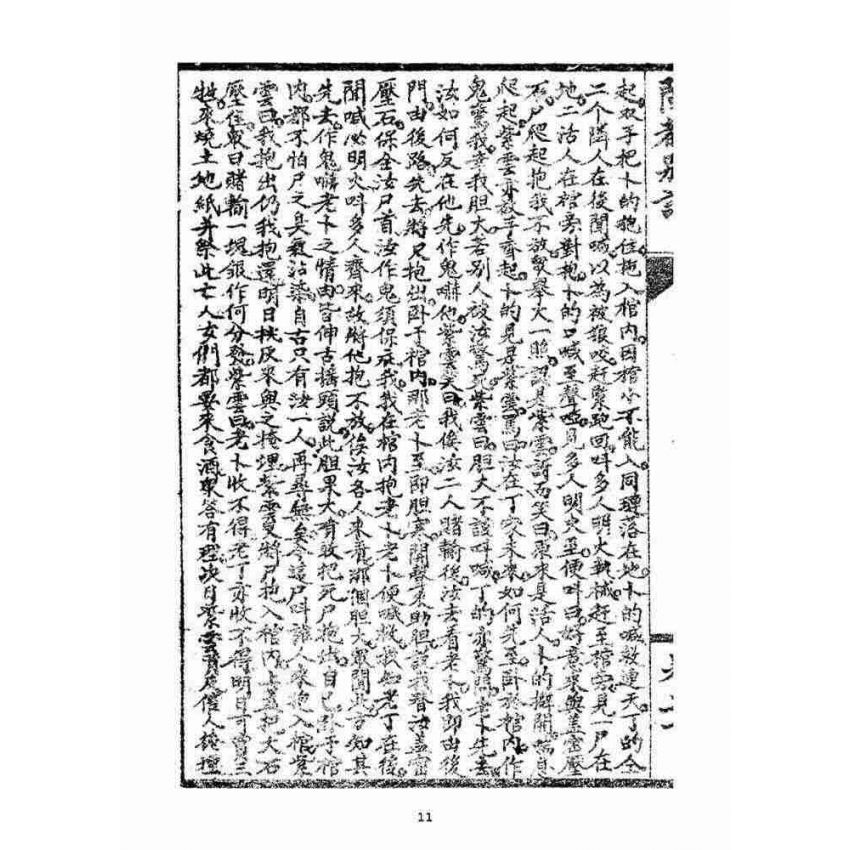 閩都別記
起双手把卜的抱住拖入棺内因棺小不能入同躍落在地卜的喊救連天丁的仝
二个隣人在後聞喊以為被狼咬赶緊跑回呌多人明火執械赶至棺旁見一尸在
地二活人在棺旁對抱卜的口喊至聲啞見多人明火至便呌曰好意來與盖密壓
石尸爬起抱我不放眾舉火一照認是紫雲訝而笑曰原來是活人卜的掰開
爬起紫雲亦放手齊起卜的見是紫雲罵曰汝在丁家未來如何先至卧於棺内作
鬼驚我幸我胆大若別人被汝驚死紫雲曰胆大不該呌喊丁的亦驚
汝如何反在他先作鬼嚇他紫雲笑曰我俟汝二人賭輸後汝去看老卜我即由後
門由後路先去將尸抱出卧于棺内那老卜至即胆寒開聲來助胆説我替汝盖密
壓石保全汝尸首汝作鬼須保庇我我在棺内抱老卜老卜便喊救我知老丁在後
聞喊必明火呌多人齊來故將他抱不放俟汝各人來看那個胆大眾聞此方知其
先去作鬼嚇老卜之情由皆伸舌摇頭説此胆果大有敢把死尸抱出自己卧于棺
内都不怕尸之臭氣沾染自古只有汝一人再尋無矣今這尸呌誰人來抱入棺紫
雲曰我抱出仍我抱還明日挑灰來與之掩埋紫雲復將尸抱入棺内上盖扣大石
壓住眾曰賭輸一塊銀作何分發紫雲曰老卜收不得老丁亦收不得明日可買三
牲來燒土地紙并祭此亡人女們都要來食酒眾答有理次日紫雲
11